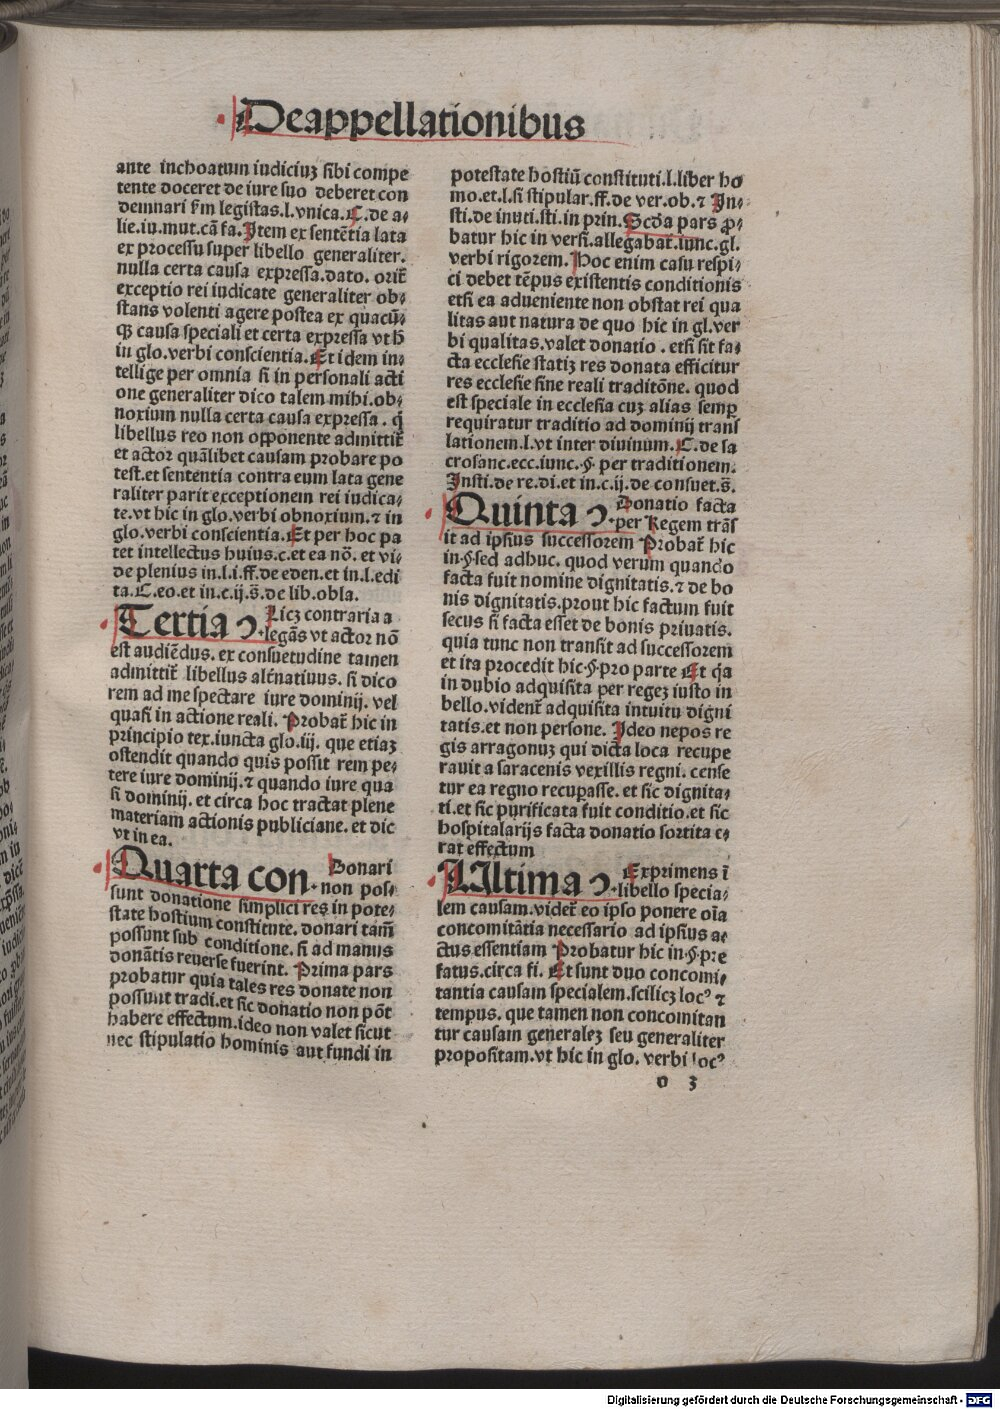 Deappellationibus
ante inchoatum iudiciuʒ sibi compe
tente doceret de iure suo deberet con
demnari ẜm legistas.l.vnica.C.de a⸗
lie.iu.mut.cã fa.Item ex sentẽtia lata
ex processu super libello generaliter.
nulla certa causa expressa.dato. orit̃
exceptio rei iudicate generaliter ob⸗
stans volenti agere postea ex quacũ⸗
qʒ causa speciali et certa expressa vt h̃
in glo.verbi conscientia.Et idem in⸗
tellige per omnia si in personali acti
one generaliter dico talem mihi.ob⸗
noxium nulla certa causa expressa . q̃
libellus reo non opponente admittit̃
et actor quãlibet causam probare po
test.et sententia contra eum lata gene
raliter parit exceptionem rei iudica⸗
te.vt hic in glo.verbi obnoxium.⁊ in
glo.verbi conscientia.Et per hoc pa
tet intellectus huius.c.et ea nõ. et vi⸗
de plenius in.l.i.ff.de eden.et in.l.edi
ta.C.eo.et in.c.ij.s̃.de lib.obla.
Tertia ꝯ. Licʒ contraria a
legãs vt actor nõ
est audiẽdus. ex consuetudine tamen
admittit̃ libellus alt̃natiuus. si dico
rem ad me spectare iure dominij. vel
quasi in actione reali. Probat̃ hic in
principio tex.iuncta glo.iij. que etiaʒ
ostendit quando quis possit rem pe⸗
tere iure dominij.⁊ quando iure qua
si dominij. et circa hoc tractat plene
materiam actionis publiciane. et dic
vt in ea.
Quarta con. Donari
non pos⸗
sunt donatione simplici res in pote⸗
state hostium constitute. donari tam̃
possunt sub conditione. si ad manus
donãtis reuerse fuerint. Prima pars
probatur quia tales res donate non
possunt tradi.et sic donatio non põt
habere effectum.ideo non valet sicut
nec stipulatio hominis aut fundi in
potestate hostiũ constituti.l.liber ho
mo.et.l.si stipular.ff.de ver.ob.⁊ In⸗
sti.de inuti.sti.in prin.Scďa pars ꝓ⸗
batur hic in versi.allegabat̃.iunc.gl.
verbi rigorem. Hoc enim casu respi⸗
ci debet tẽpus existentis conditionis
etsi ea adueniente non obstat rei qua
litas aut natura de quo hic in gl.ver
bi qualitas.valet donatio . etsi sit fa⸗
cta ecclesie statiʒ res donata efficitur
res ecclesie sine reali traditõne. quod
est speciale in ecclesia cuʒ alias semꝑ
requiratur traditio ad dominij trans
lationem.l.vt inter diuinum.C.de sa
crosanc.ecc.iunc.§ per traditionem.
Insti.de re.di.et in.c.ij.de consuet.s̃.
Quinta ꝯ. Donatio facta
per Regem trãs
it ad ipsius successorem Probat̃ hic
in.§.sed adhuc. quod verum quando
facta fuit nomine dignitatis.⁊ de bo
nis dignitatis.prout hic factum fuit
secus si facta esset de bonis priuatis.
quia tunc non transit ad successorem
et ita procedit hic.§.pro parte Et q̃a
in dubio adquisita per regeʒ iusto in
bello.vident̃ adquisita intuitu digni
tatis.et non persone. Ideo nepos re
gis arragonuʒ qui dicta loca recupe
rauit a saracenis vexillis regni. cense
tur ea regno recuꝑasse. et sic dignita⸗
ti.et sic purificata fuit conditio.et sic
hospitalarijs facta donatio sortita e⸗
rat effectum
Ultima ꝯ. Exprimens ĩ
libello specia⸗
lem causam.videt̃ eo ipso ponere oĩa
concomitãtia necessario ad ipsius a⸗
ctus essentiam Probatur hic in.§.p:e
fatus.circa fi. Et sunt duo concomi⸗
tantia causam specialem.scilicʒ locꝰ ⁊
tempus. que tamen non concomitan
tur causam generaleʒ seu generaliter
propositam.vt hic in glo. verbi locꝰ
o 3
Digitalisierung gefördert durch die Deutsche Forschungsgemeinschaft - DFG